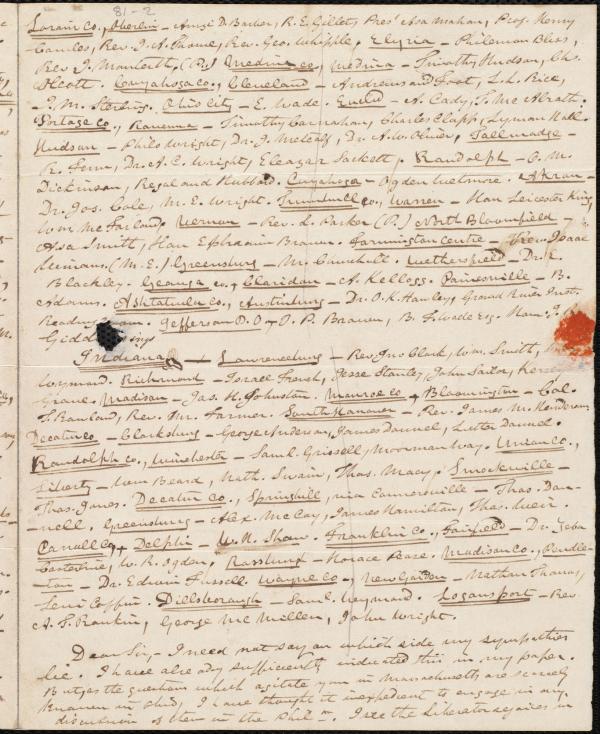 81-2
Lorain Co., Oberlin – Amzi D. Barber, R. E. Gillet, Pres' Asa Mahan, Prof. Henry
Cowles, Rev. J. A. Thome, Rev. Geo. Whipple, Elyria – Philemon Bliss,
Rev. J. Monteith, (P.) Medina co, Medina – Timothy Hudson, Chs.
Olcott. Cuyahoga co., Cleveland – Andrews and Foot, L. L. Rice,
J. M. Sterling. Ohio City – E. Wade. Euclid – A. Cady, T. Mc Ilrath.
Portage Co., Ravenna – Timothy Carnahan, Charles Clapp, Lyman Hall.
Hudson – Philo Wright, Dr. J. Metcalf, Dr. A. W. Oliver, Tallmadge –
R. Fenn, Dr. A. C. Wright, Eleazar Sackett. Randolph – O. M.
Dickinson, Regal and Hubbard. Cuyahoga – Ogden Wetmore. Akron –
Dr. Jos. Cole, M. E. Wright. Trumbull co., Warren – Hon Leicester King,
Wm. McFarland. Vernon – Rev. L. Parker (P.) North Bloomfield –
Asa Smith, Hon Ephraim Brown. Farmington Centre – Rev. Isaac
(M. E.) Greensburg – Mr. Wethersfield – Dr. E.
Blackley. Geauga co, Claridon – A. Kellogg. Painesville – B.
Adams. Ashtabula co., Austinburg – Dr. O. K. Hawley, Grand River Inst.
Reading Room. Jefferson P.O. – O. P. Brown, B. F. Wade Esq. Hon. J.
Giddings
Indiana – Lawrenceburg – Rev. Jno Clark, Wm. Smith,
Wymond. Richmond – Israel French, Jesse Stanley, John Sailor, Kersey
Grave. Madison – Jas. H. Johnston. Monroe co, Bloomington – Col.
T. Rawland, Rev. Mr. Farmer. South Hanover – Rev. James M. Henderson,
Decatur co – Clarksburg – George Anderson, James Donnel, Luther Donnel.
Randolph co., Winchester – Saml. Grissell, Moorman Way. Union Co.,
Liberty – Wm Beard, Nath. Swain, Thos. Macy. Smockville –
Thos. Jones. Decatur Co., Springhill, via Connersville – Thos. Don-
nell, Greensburg – Alex. McCoy, James Hamilton, Thos. Weir.
Carroll Co, Delphi – W. N. Shaw. Franklin Co, Fairfield – Dr. Zeba
Casterline, W. R. Ogden, Rossburg – Horace Pease. Madison Co., Pendle-
ton – Dr. Edwin Fussell. Wayne Co, New Garden – Nathan Thomas,
Levi Coffin. Dillsborough – Saml. Weymond. Logansport – Rev.
A. T. Rankin, George McMillen, John Wright.
Dear Sir, – I need not say on which side my sympathies
lie. I have already sufficiently indicated this in my paper.
But, as the questions which agitate you in Massachusetts are scarcely
known in Ohio, I have thought it inexpedient to engage in any
discussion of them in the Phil^m. I see the Liberator rejoices in